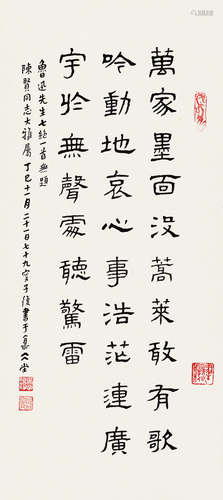 萬家墨面沒蒿萊敢有歌
吟動地哀心事浩茫連廣
宇於無聲處聽驚雷
魯迅先生七絕一首無題
陳賢同志大雅屬丁巳十一月二十一日七十九叟子復書于